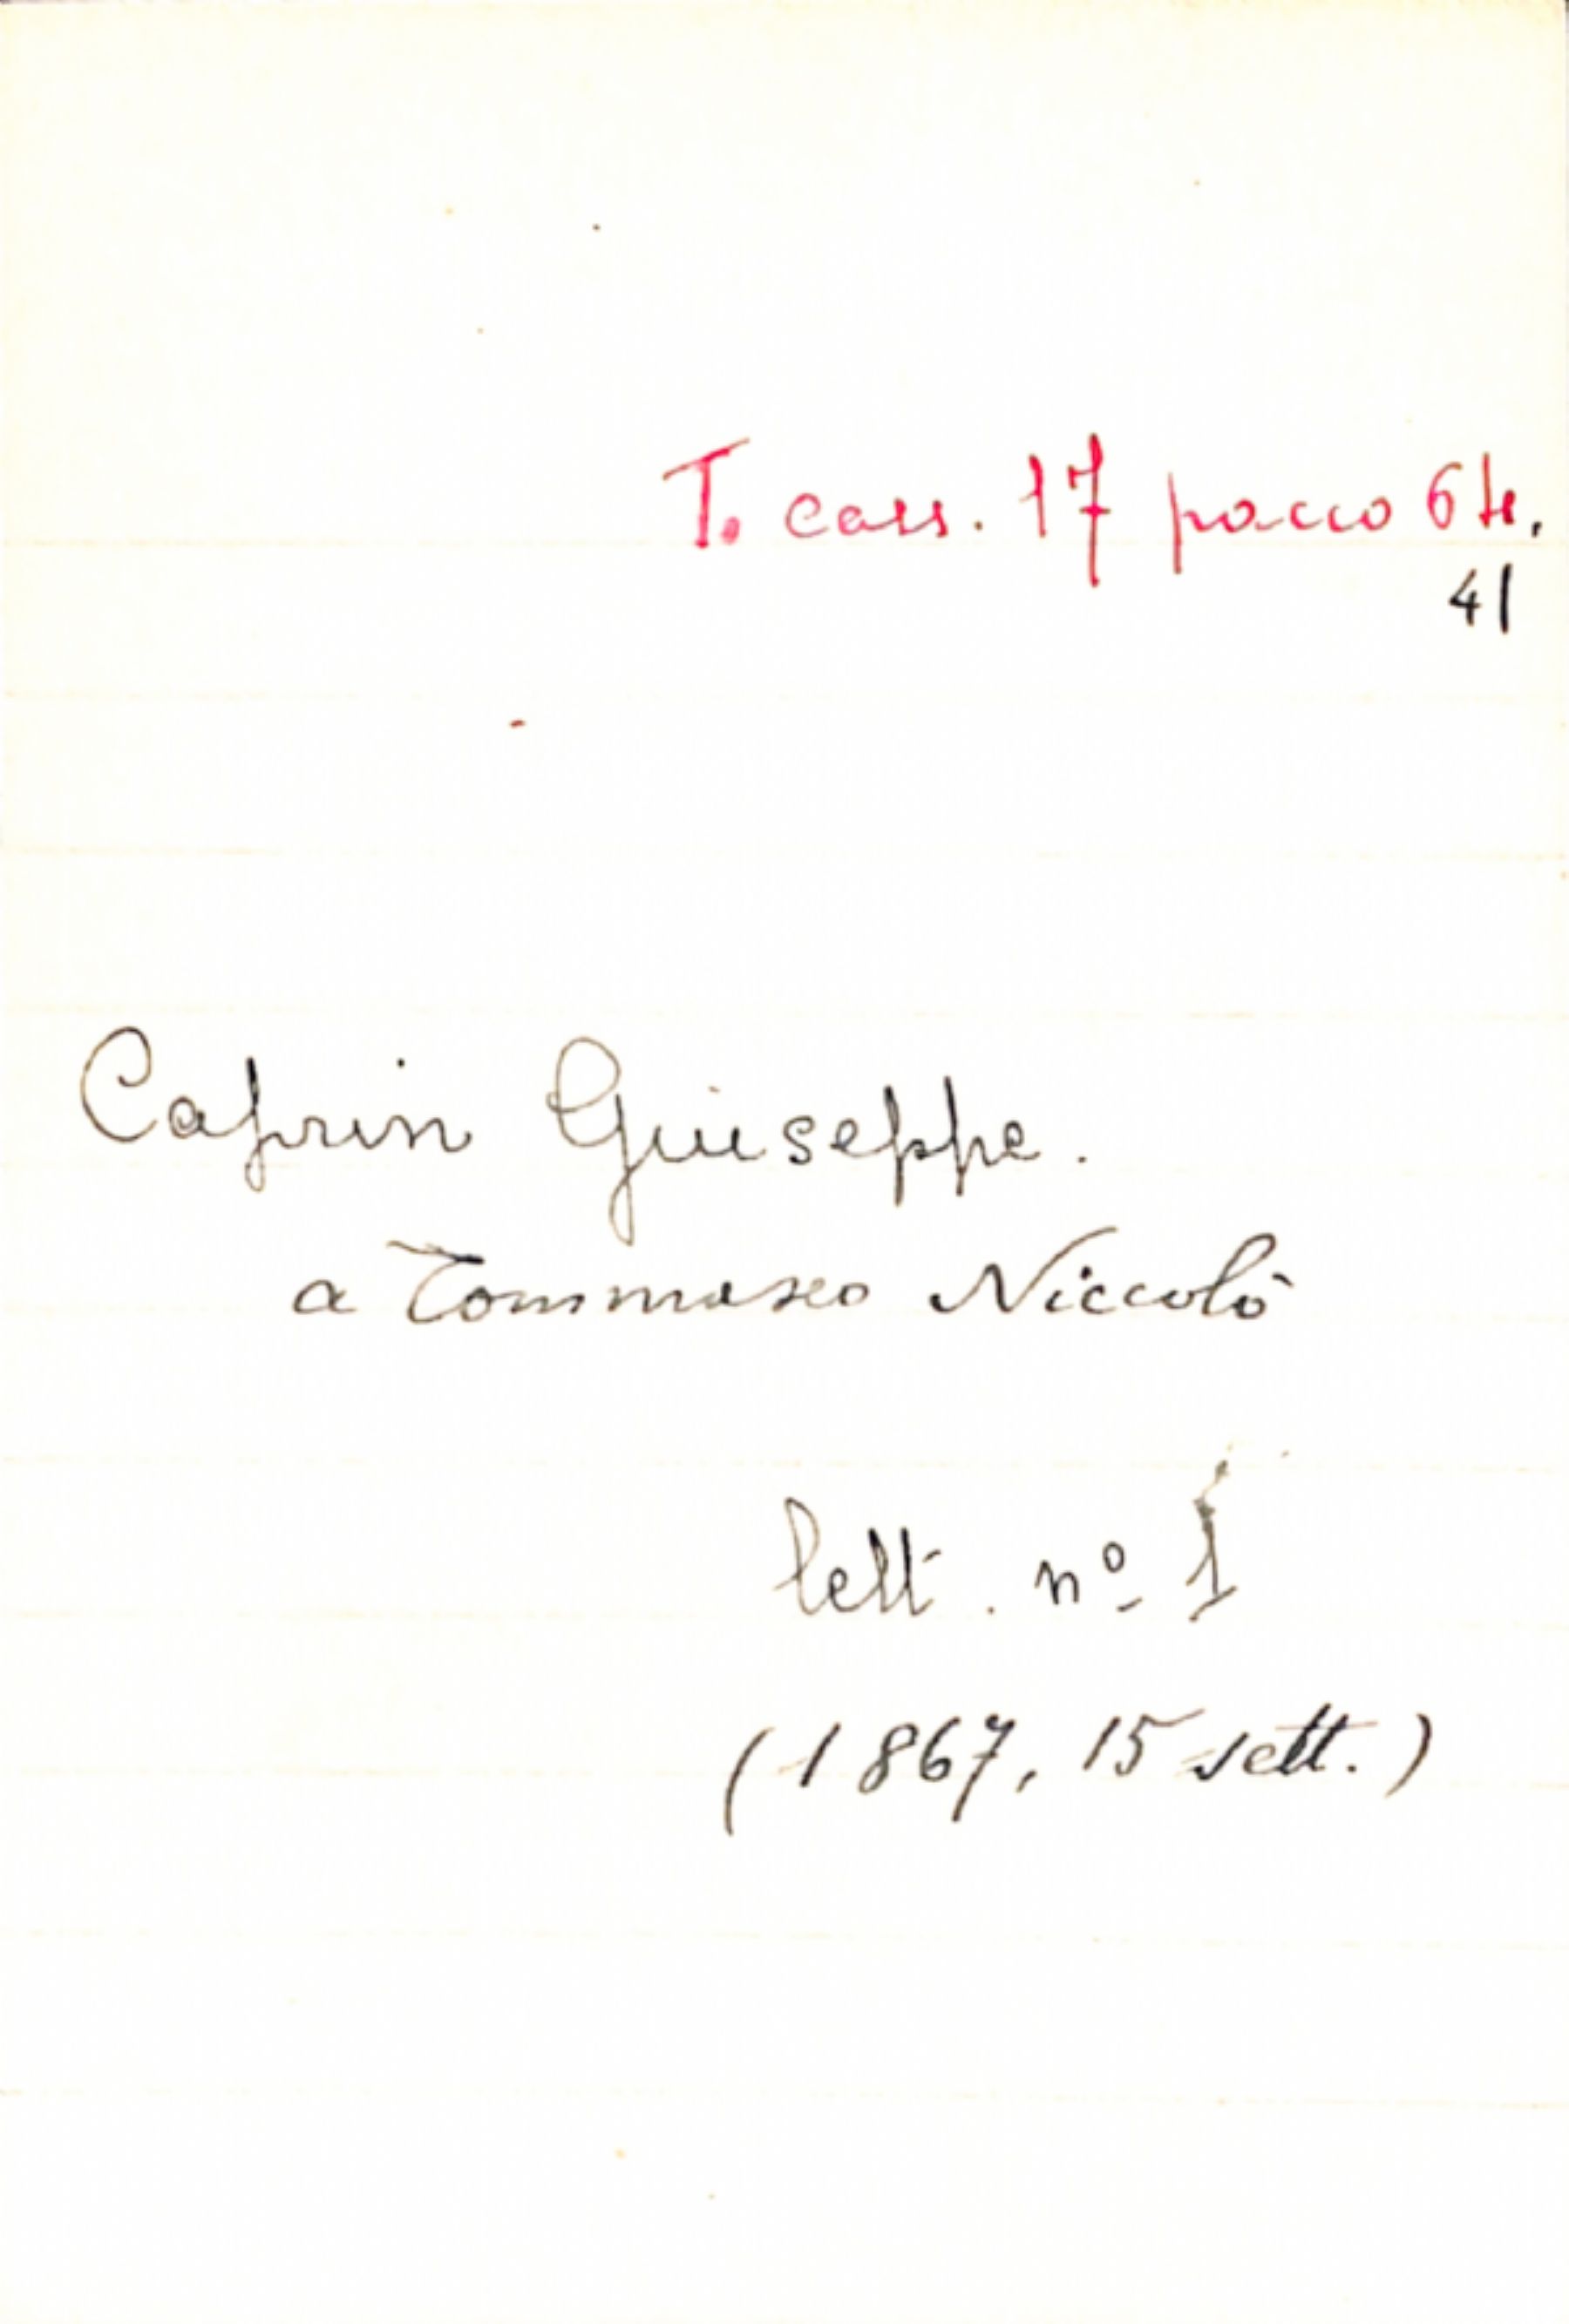 T. cass. 17 pacco 64.
41
Caprin Giuseppe.
a Tommaseo Niccolò
lett. nº 1
(1867, 15 sett.)